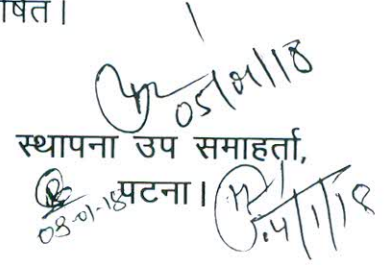 षित।
05/01/18
स्थापना उप समाहर्ता,
पटना।
03-01-18
4/1/18